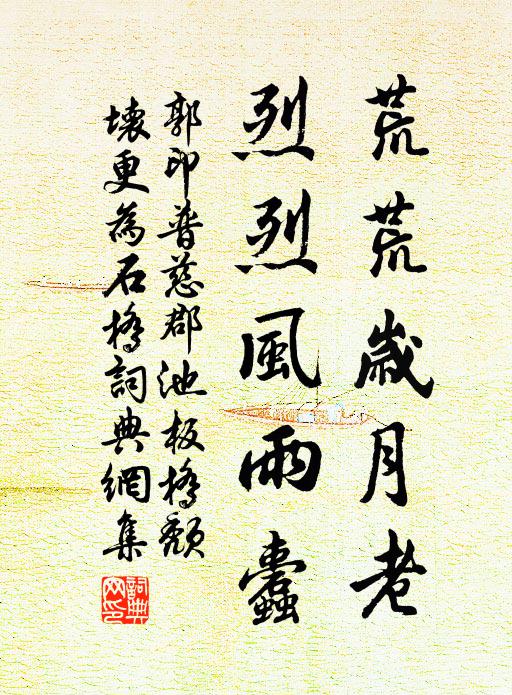 荒荒歲月老
烈烈風雨蠹
郭印普慈郡池板橋頹
壞更為石橋詞典網集
詞典網印